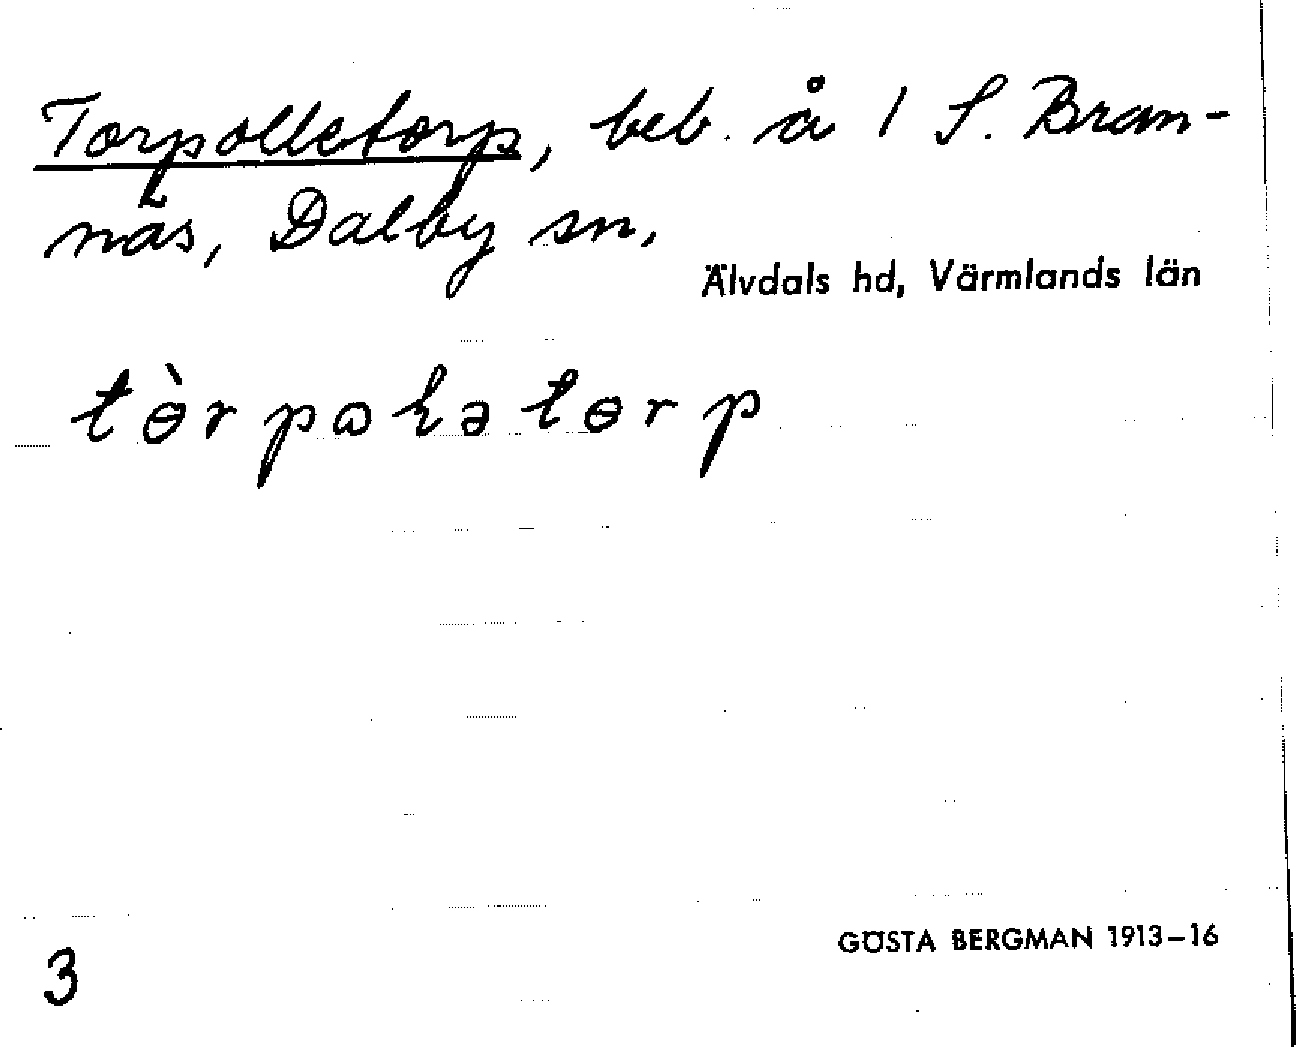 Torpolletorp, beb. å 1 S. Bran-
näs, Dalby sn,
Älvdals hd, Värmlands län
tɵ̀rpɷꞎətɵrp
GÖSTA BERGMAN 1913–16
3